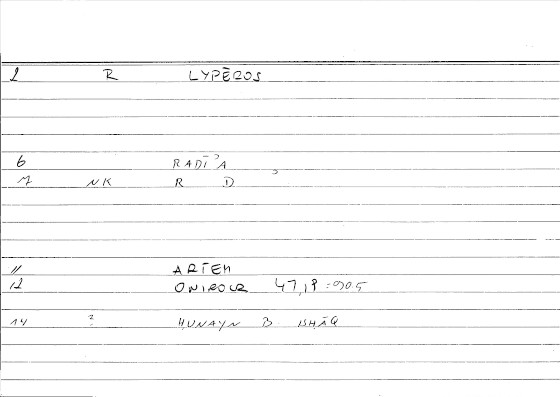 1 R LYPĒROS
6 RADĪʾA
7 NK R Ḍ ʾ
11 ARTEM
12 ONIROCR 47,18
14 ? ḤUNAYN B ISḤĀQ